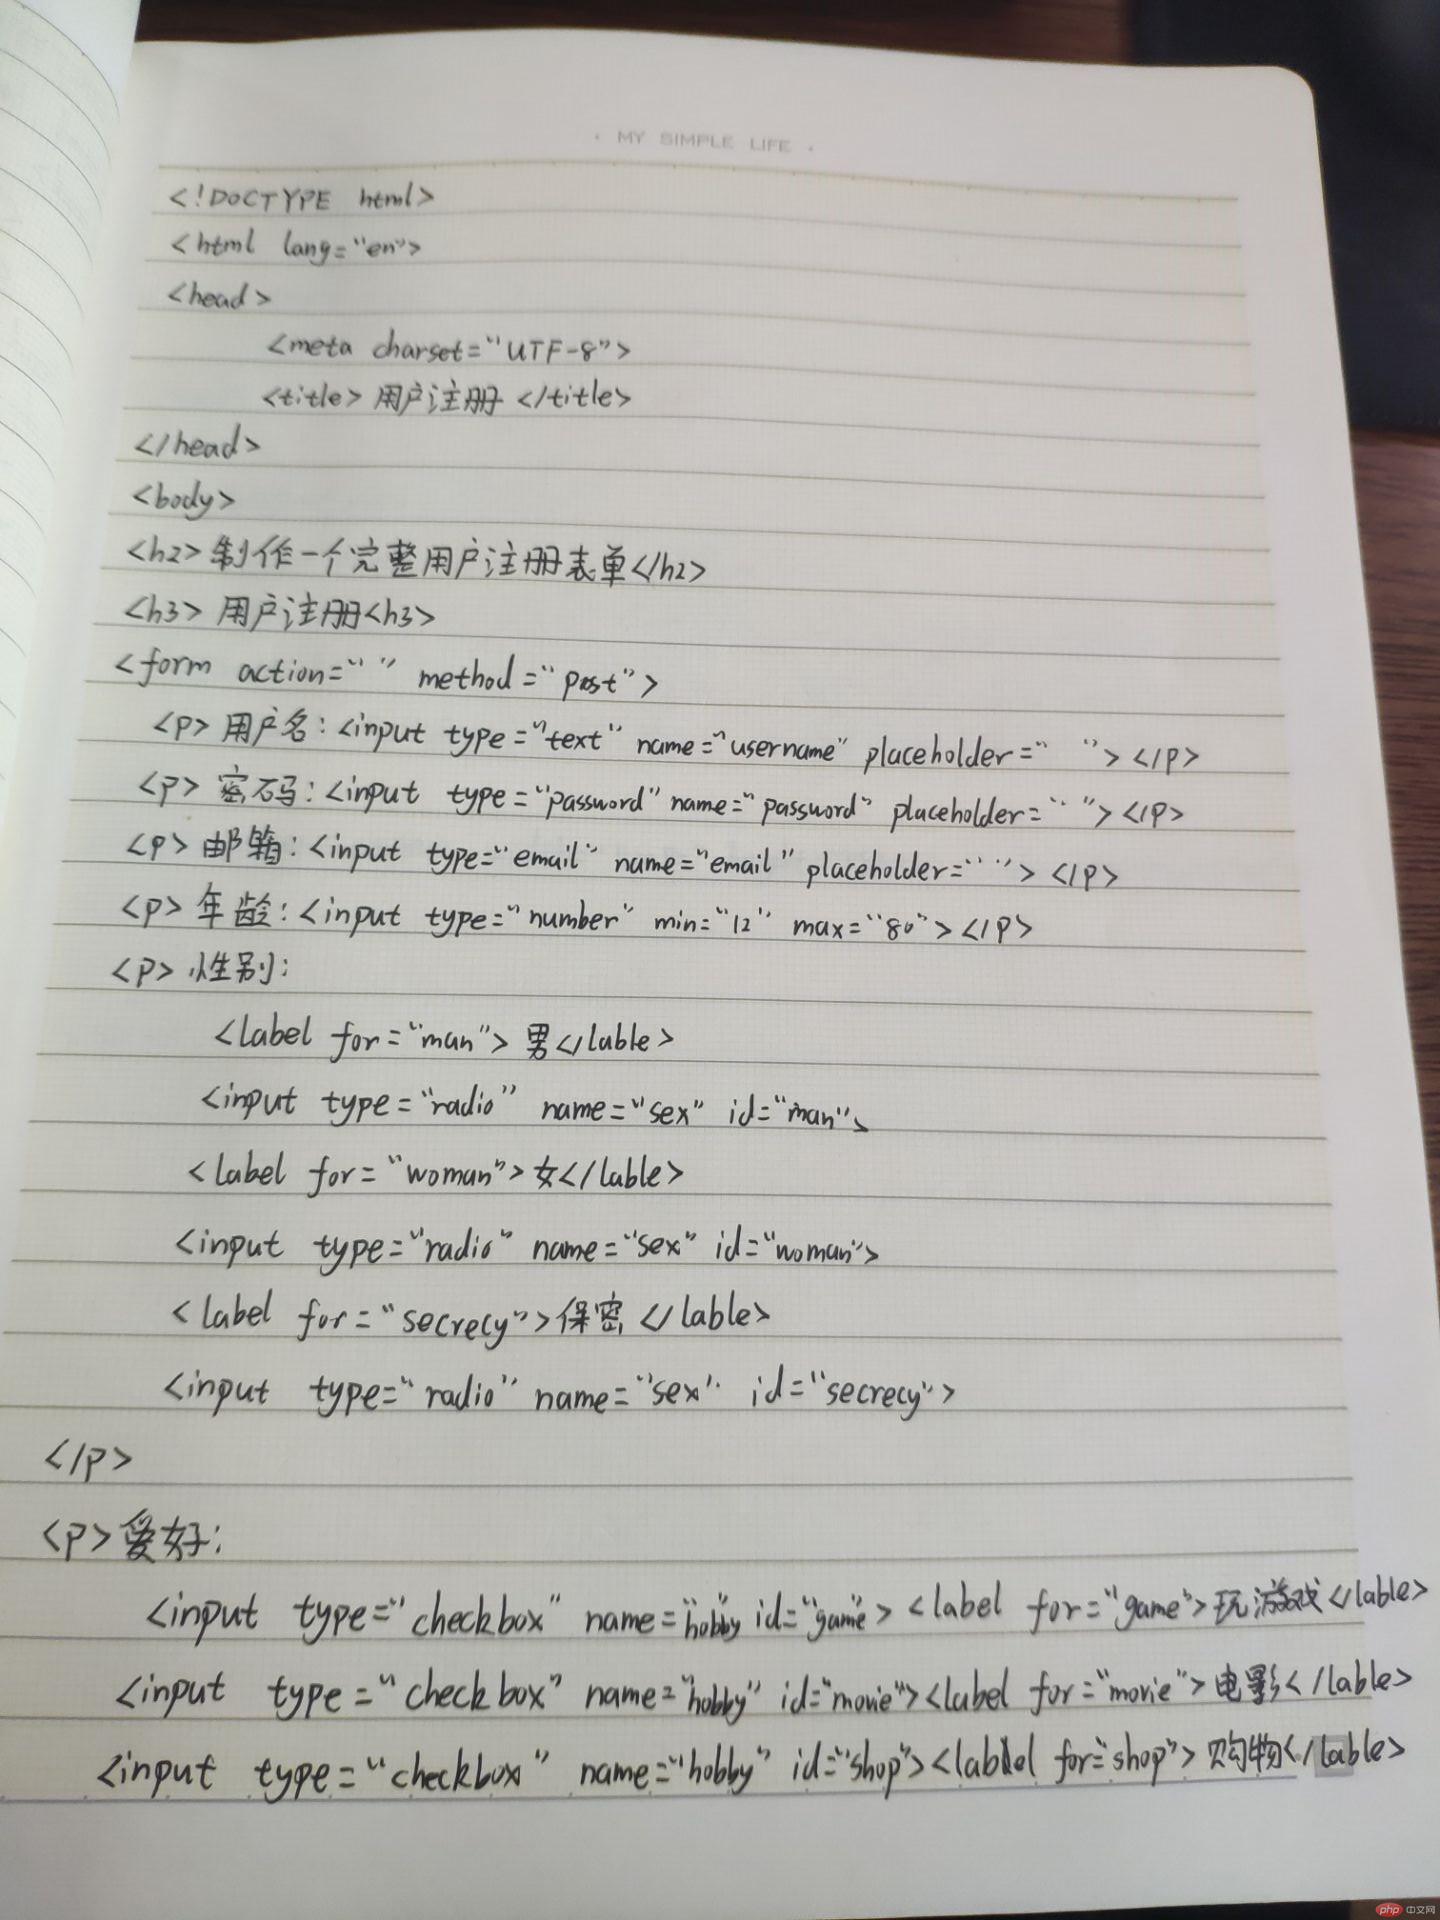 · MY SIMPLE LIFE ·
<!DOCTYPE html>
<html lang="en">
<head>
<meta charset="UTF-8">
<title>用户注册</title>
</head>
<body>
<h2>制作一个完整用户注册表单</h2>
<h3>用户注册<h3>
<form action=" " method="post">
<p>用户名:<input type="text" name="username" placeholder=" "></p>
<p>密码:<input type="password" name="password" placeholder=" "></p>
<p>邮箱:<input type="email" name="email" placeholder=" "></p>
<p>年龄:<input type="number" min="12" max="80"></p>
<p>性别:
<label for="man">男</lable>
<input type="radio" name="sex" id="man">
<label for="woman">女</lable>
<input type="radio" name="sex" id="woman">
<label for="secrecy">保密</lable>
<input type="radio" name="sex" id="secrecy">
</p>
<p>爱好:
<input type="checkbox" name="hobby" id="game"><label for="game">玩游戏</lable>
<input type="checkbox" name="hobby" id="movie"><label for="movie">电影</lable>
<input type="checkbox" name="hobby" id="shop"><label for="shop">购物</lable>
php 中文网